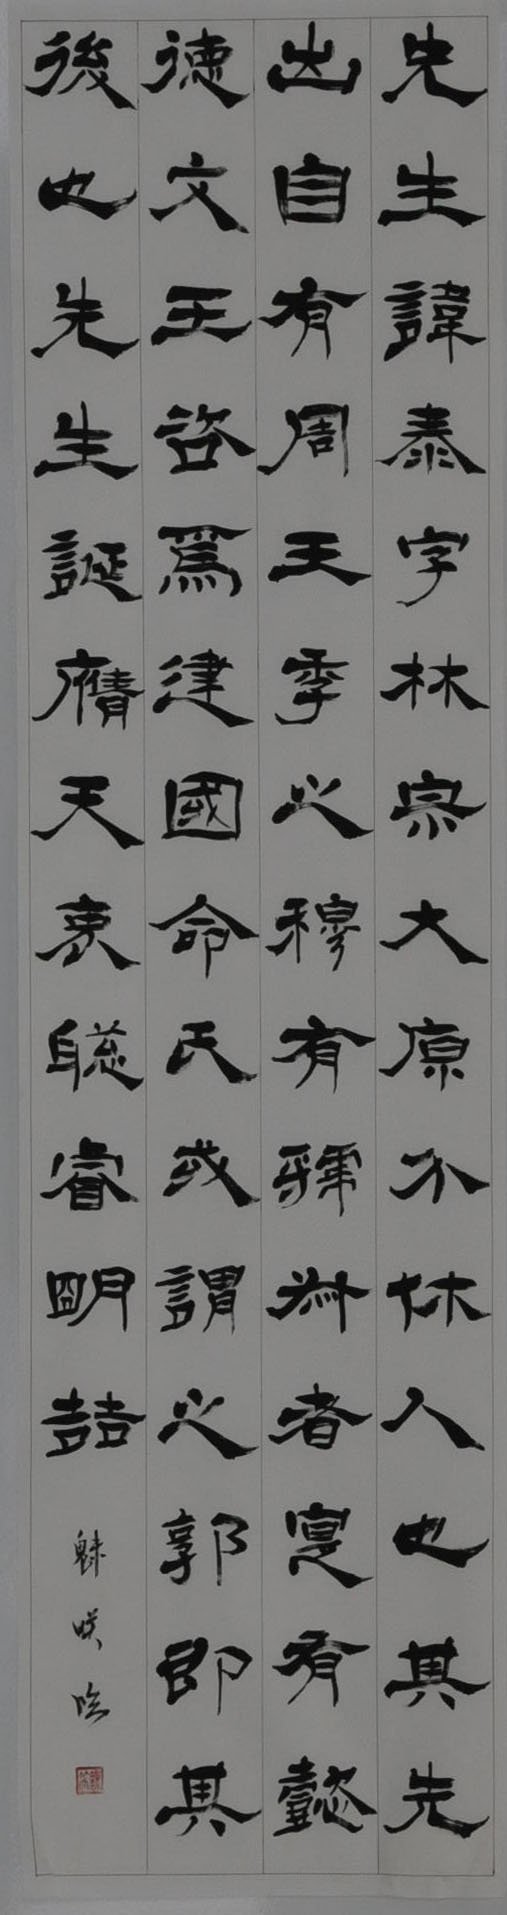 先生諱泰字林宗大原介休人也其先
出自有周王季之穆有虢叔者寔有懿
德文王咨焉建國命氏或謂之郭即其
後也先生誕膺天衷聰睿明喆
咲臨